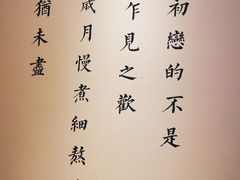 初戀的不是
乍見之歡
歲月慢煮細熬
猶未盡